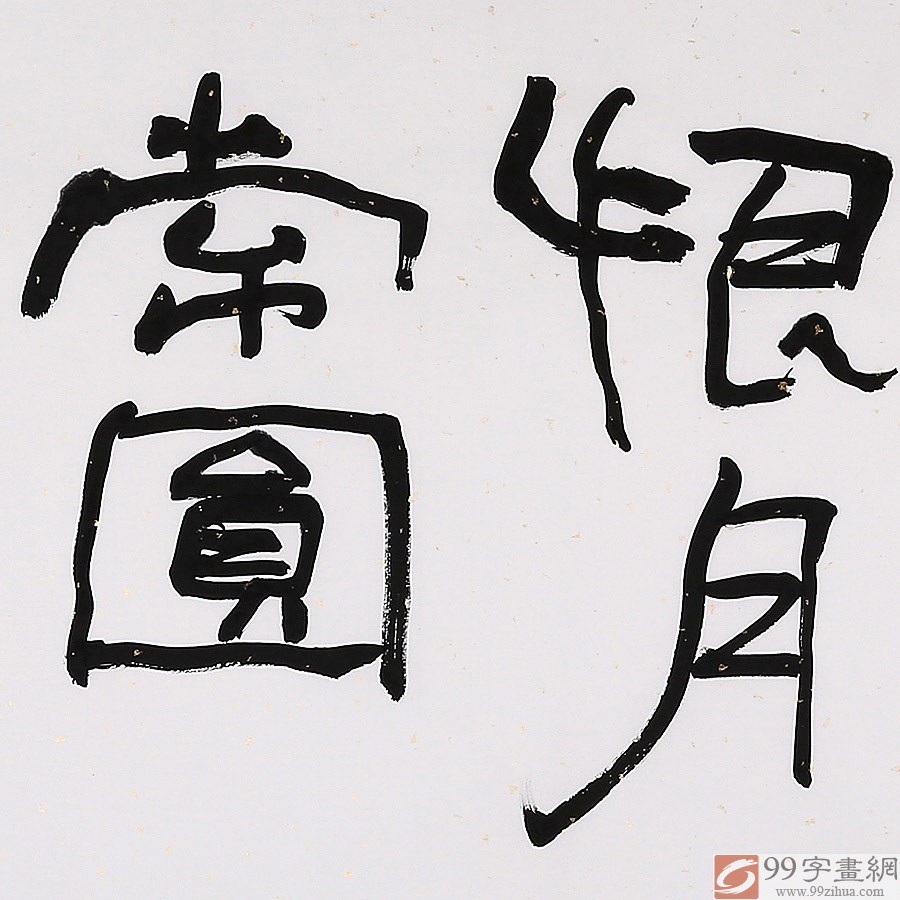 恨月
常圓
99字畫網
www.99zihua.com